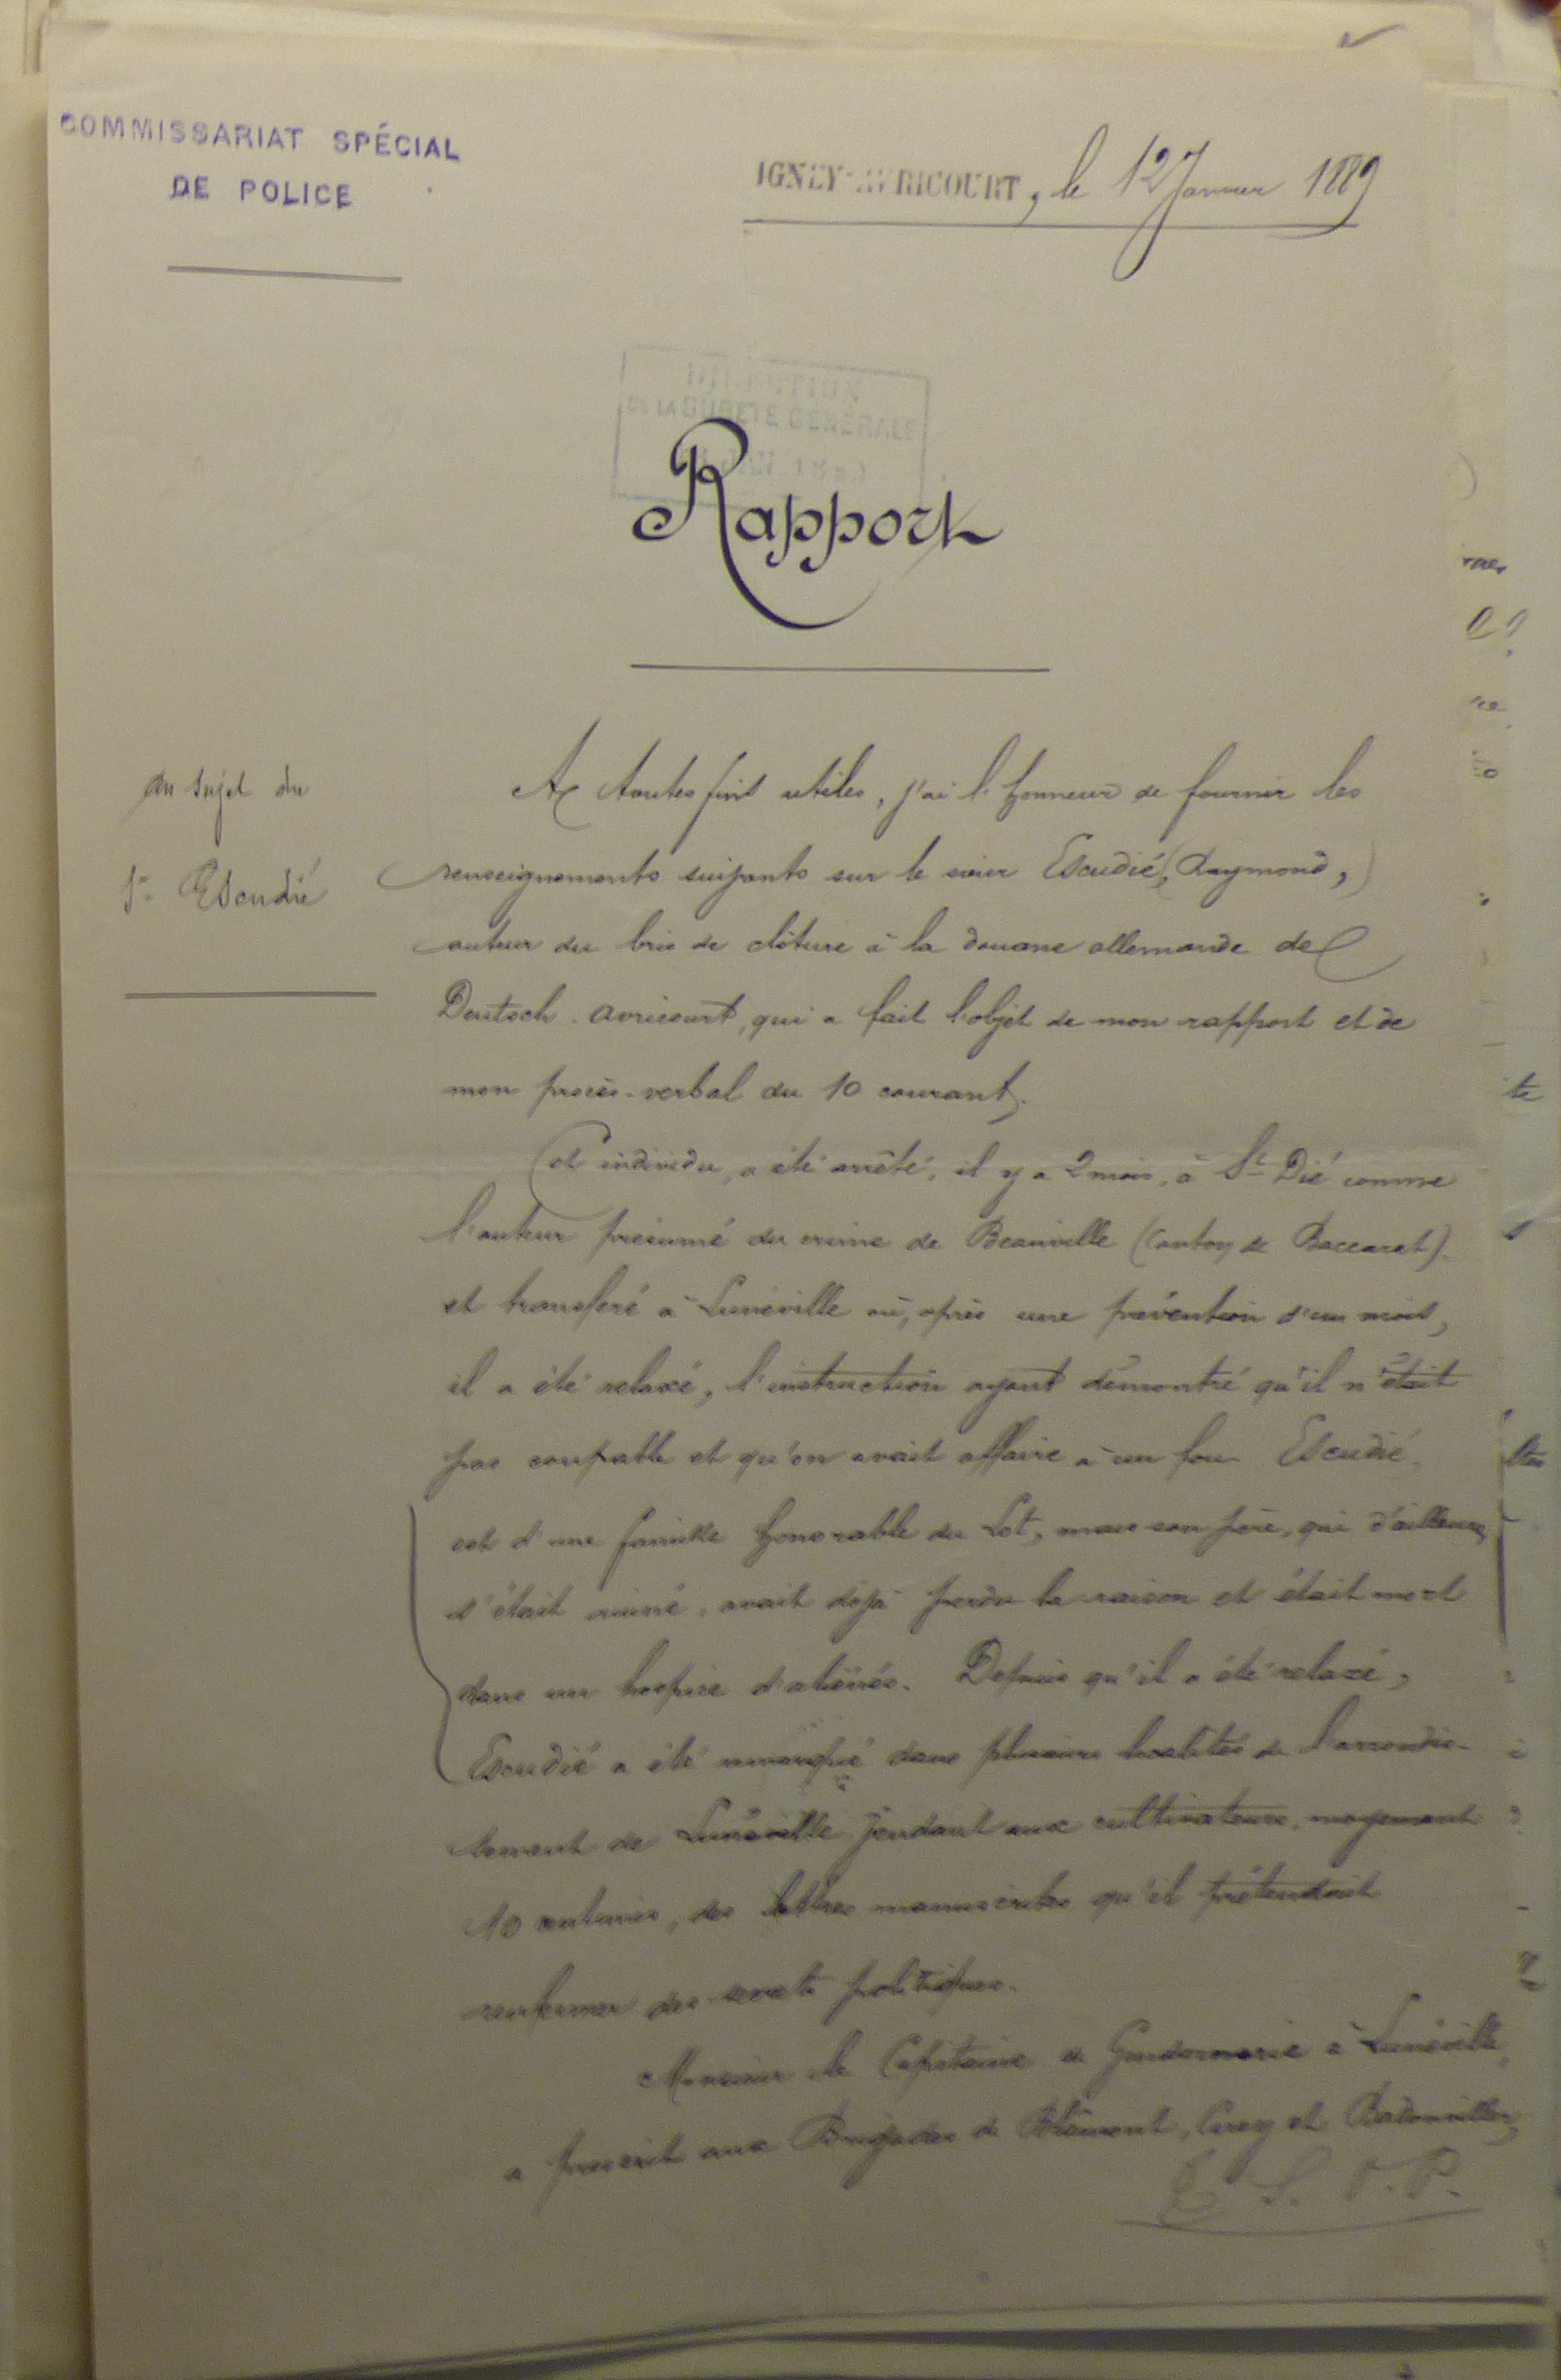 COMMISSARIAT SPÉCIAL
DE POLICE
IGNEY-AVRICOURT, le 12 Janvier 1889
DIRECTION
DE LA SURETÉ GÉNÉRALE
Rapport
au sujet du
Sr Escudié
A toutes fins utiles, j'ai l'honneur de fournir les
renseignements suivants sur le sieur Escudié, (Raymond,)
auteur du bris de clôture à la douane allemande de
Deutsch-Avricourt, qui a fait l'objet de mon rapport et de
mon procès-verbal du 10 courant.
Cet individu, a été arrêté, il y a 2 mois, à St Dié comme
l'auteur présumé du crime de (Canton de Baccarat).
et transféré à Lunéville où, après une prévention d'un mois,
il a été relaxé, l'instruction ayant démontré qu'il n'était
pas coupable et qu'on avait affaire à un fou. Escudié
est d'une famille honorable du Lot, mais son père, qui d'ailleurs
s'était ruiné, avait déjà perdu la raison et était mort
dans un hospice d'aliénés. Depuis qu'il a été relaxé,
Escudié a été remarqué dans plusieurs localités de l'arrondis-
sement de Lunéville vendant aux cultivateurs, moyennant
10 centimes, des lettres manuscrites qu'il prétendait
renfermer des secrets politiques.
Monsieur le Capitaine de Gendarmerie à Lunéville,
a prescrit aux Brigades de Blâmont, Cirey et Badonviller,
T. S. V. P.